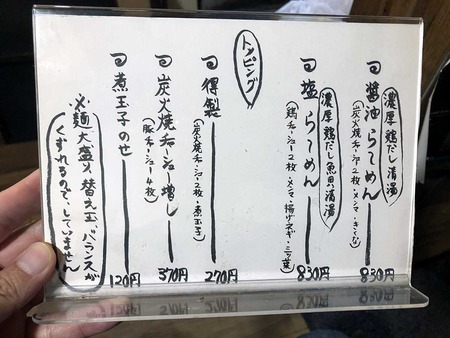 濃厚鶏だし清湯
醤油らーめん 830円
(炭火焼チャーシュー2枚・メンマ・きくな)
濃厚鶏だし魚貝清湯
塩らーめん 830円
(鶏チャーシュー2枚・メンマ・揚げネギ・三ッ葉)
トッピング
得製 270円
(炭火焼チャーシュー2枚・煮玉子)
炭火焼チャーシュー増し 370円
(豚チャーシュー4枚)
煮玉子のせ 120円
※麺大盛り替え玉バランスが
くずれるので、していません